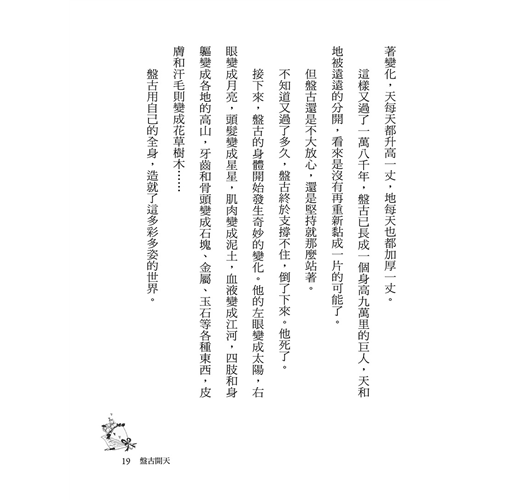 著變化，天每天都升高一丈，地每天也都加厚一丈。
這樣又過了一萬八千年，盤古已長成一個身高九萬里的巨人，天和
地被遠遠的分開，看來是沒有再重新黏成一片的可能了。
但盤古還是不大放心，還是堅持就那麼站著。
不知道又過了多久，盤古終於支撐不住，倒了下來。他死了。
接下來，盤古的身體開始發生奇妙的變化。他的左眼變成太陽，右
眼變成月亮，頭髮變成星星，肌肉變成泥土，血液變成江河，四肢和身
軀變成各地的高山，牙齒和骨頭變成石塊、金屬、玉石等各種東西，皮
膚和汗毛則變成花草樹木……
盤古用自己的全身，造就了這多彩多姿的世界。
19 盤古開天